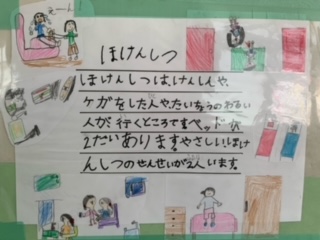 えーん
ほけんしつ
ほけんしつは、けんしんや、
ケガをした人や、たいちょうのわるい
人が、行くところですベッドが
2だいあります。やさしい、ほけ
んしつのせんせいが2人います。